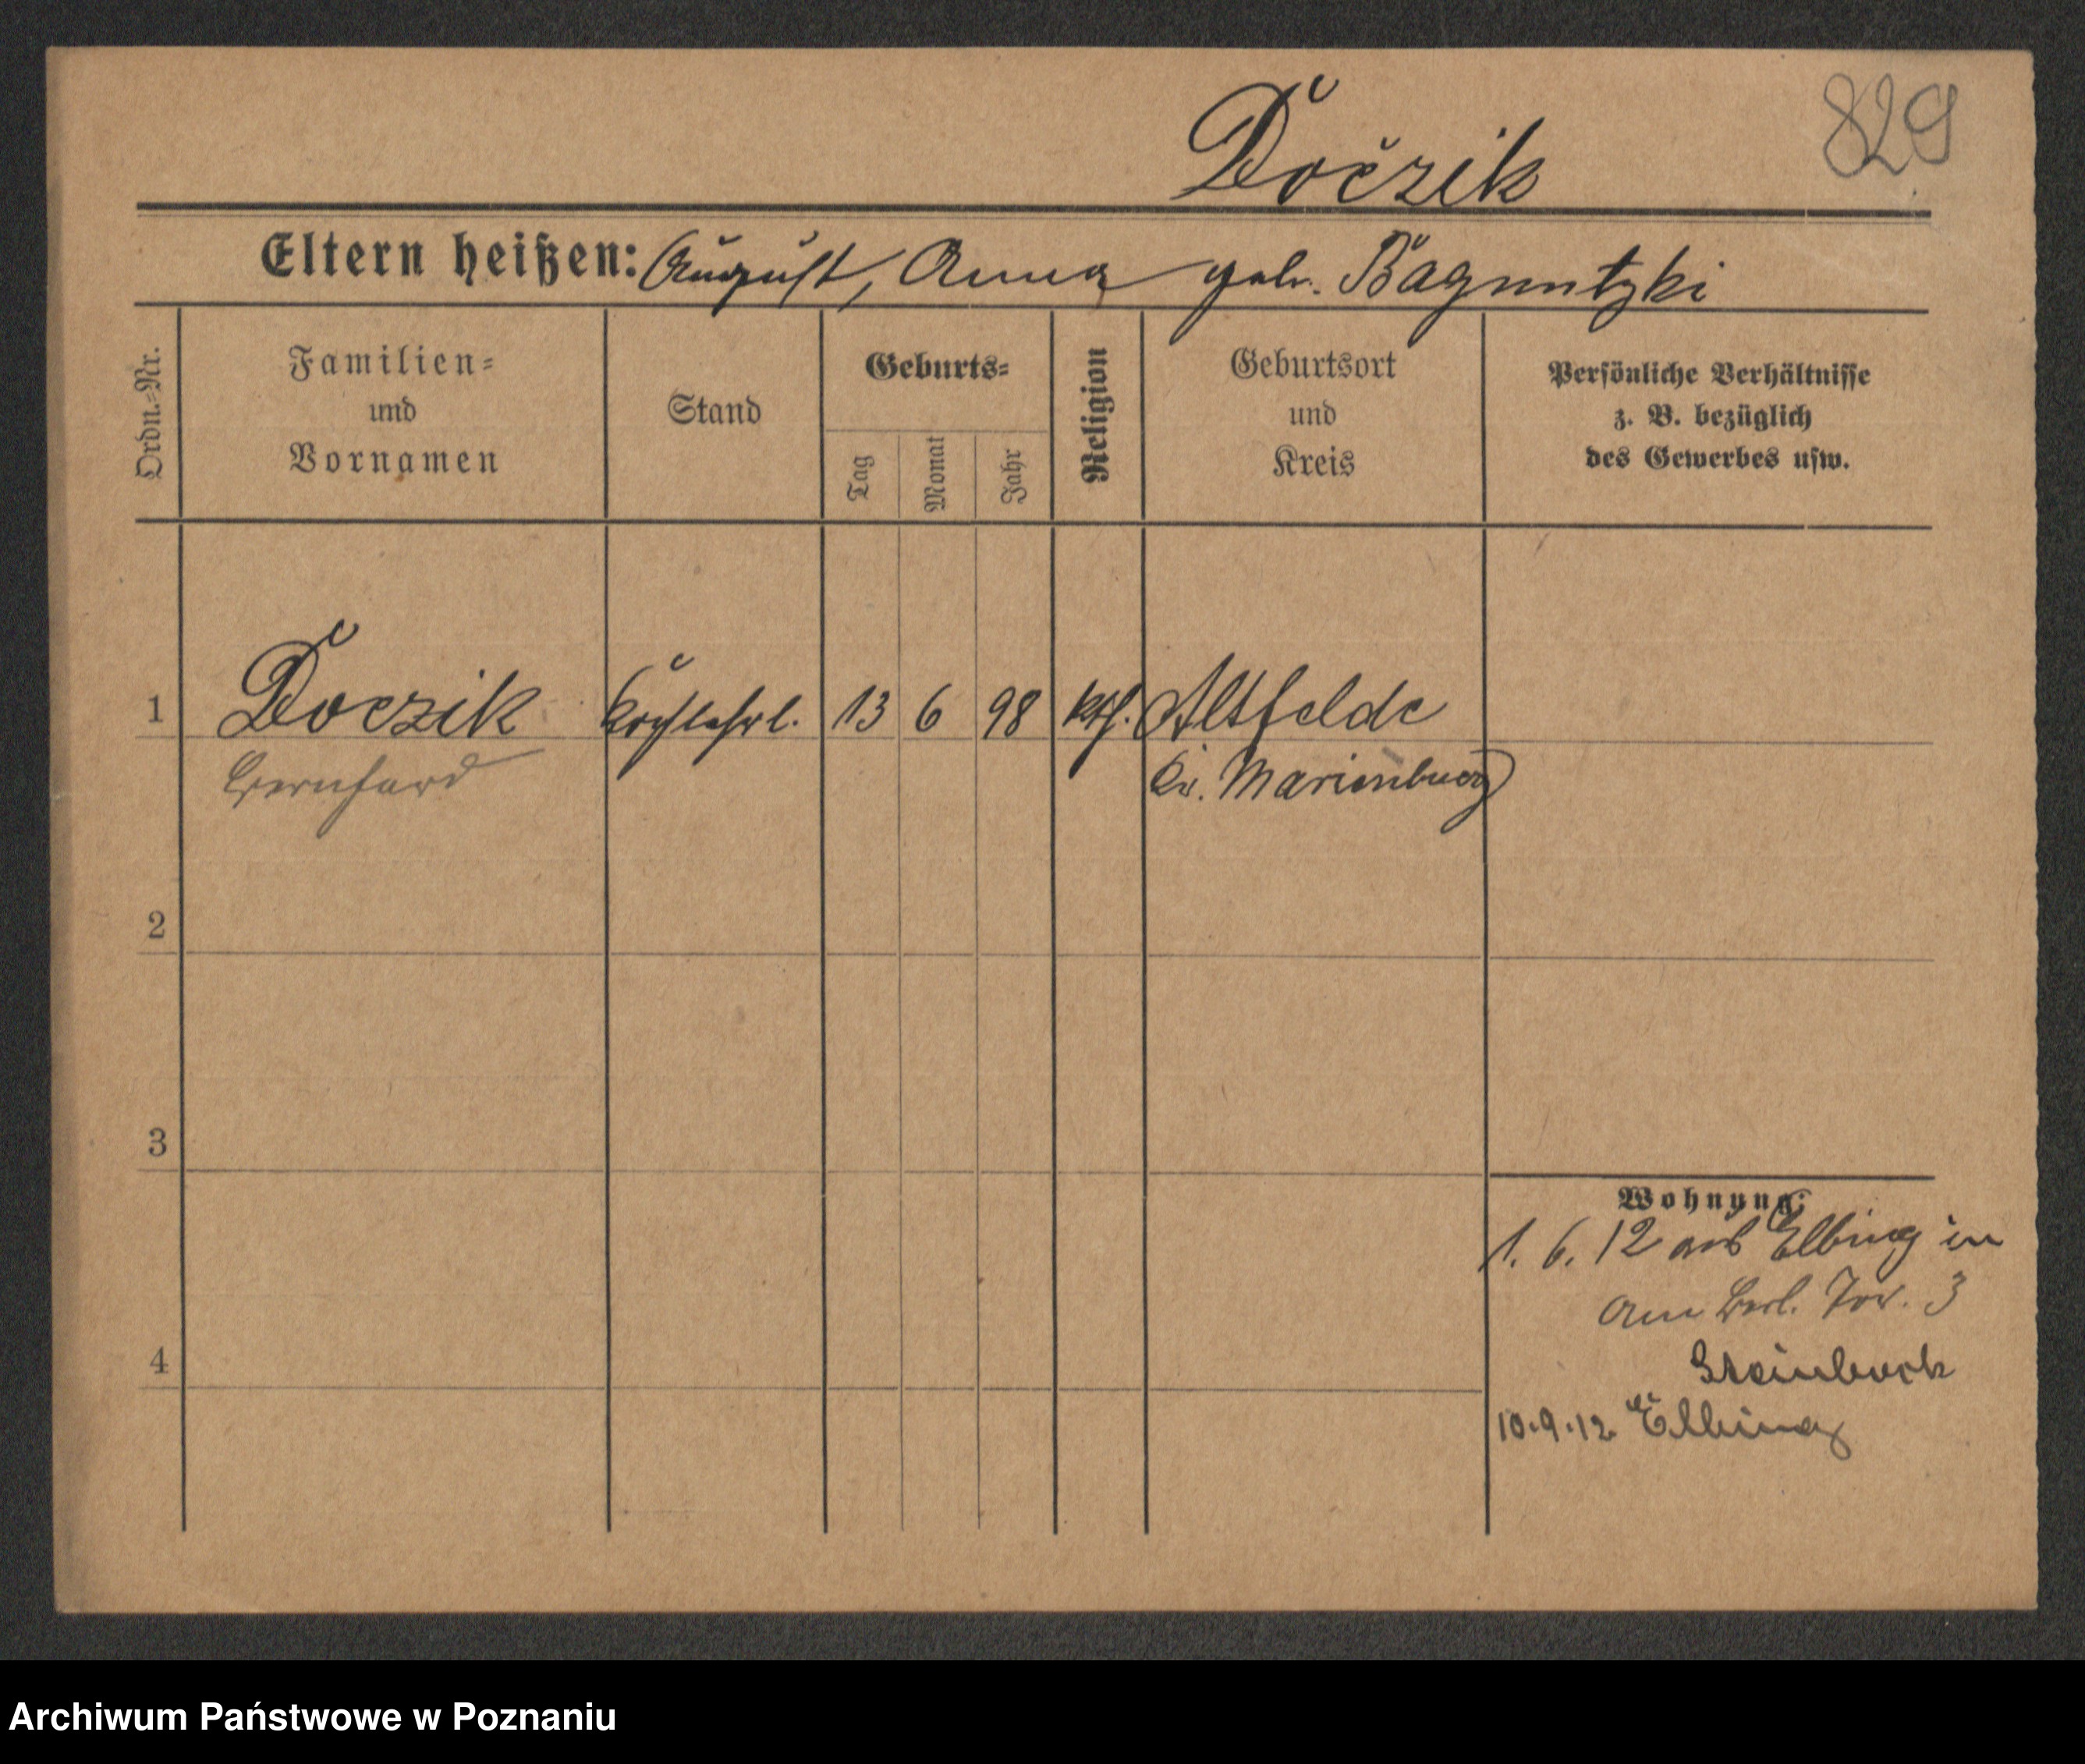 829
Doczik
Eltern heißen: August, Anna geb. Bagnutzki
Ordn.-Nr.
Familien-
und
Vornamen
Stand
Geburts-
Tag
Monat
Jahr
Religion
Geburtsort
und
Kreis
Persönliche Verhältnisse
z. B. bezüglich
des Gewerbes usw.
1 Doczik Kochlehrl. 13 6 98 kth. Altfelde
Bernhard Kr. Marienburg
2
3
Wohnung:
1. 6. 12 aus Elbing in
Am Berl. Tor. 3
4
Steinbock
10.9.12 Elbing
Archiwum Państwowe w Poznaniu